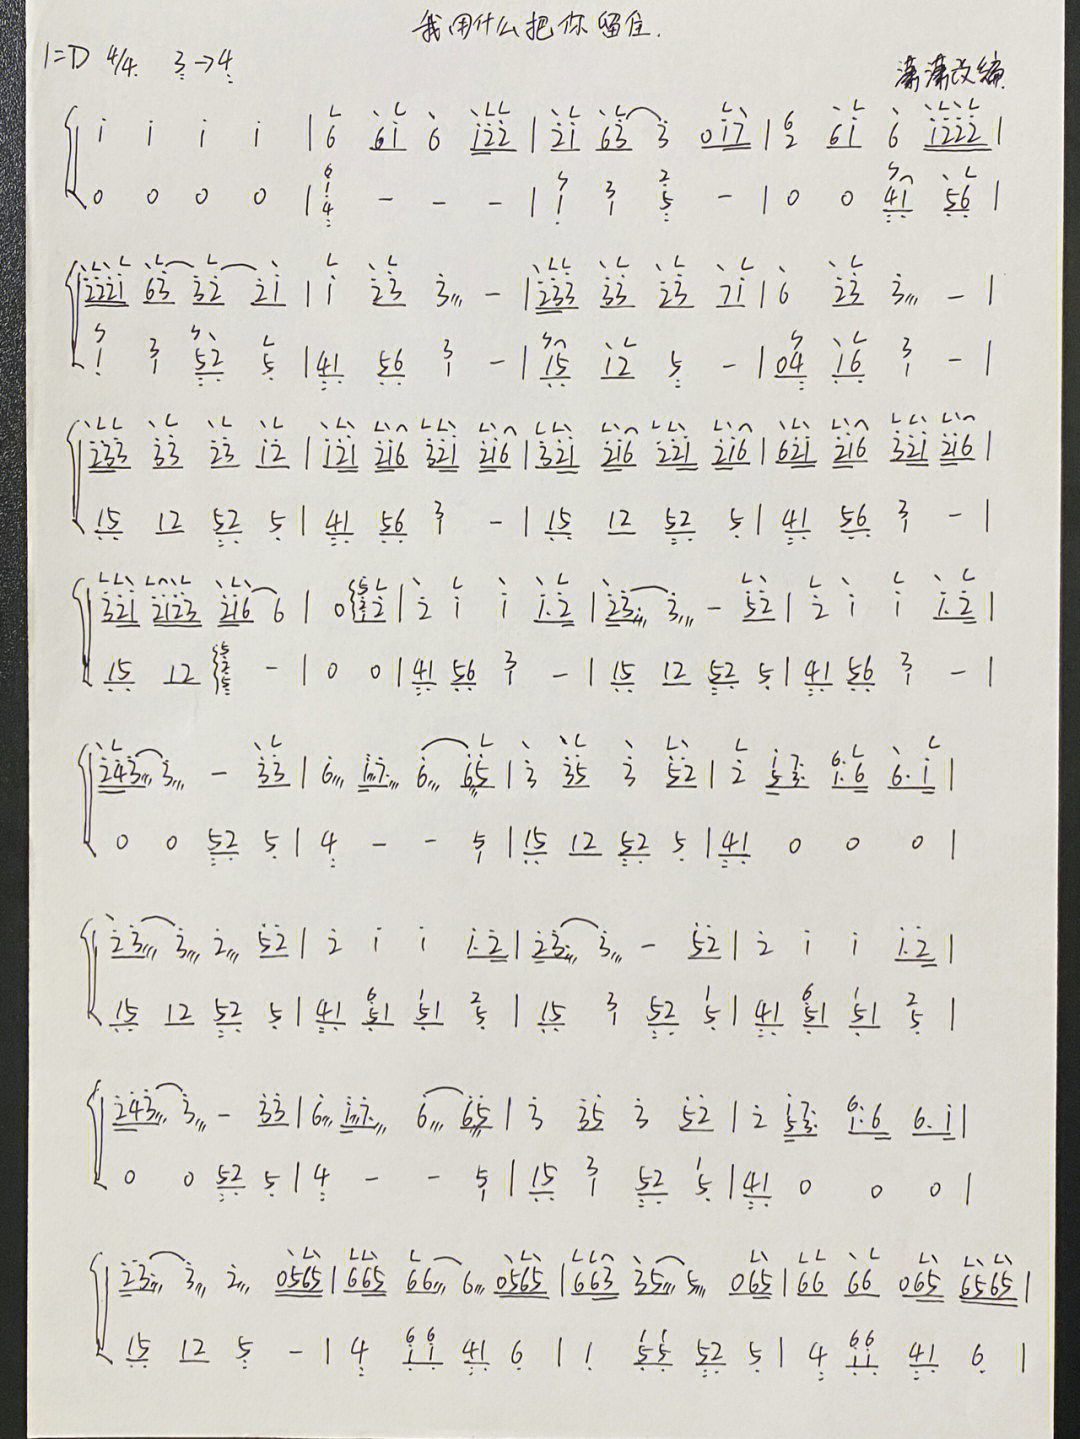 我用什么把你留住.
1=D 4/4. 3→4
潇潇改编
i i i i | 6 6i 6 i22 | 2i 63 3 0i7 | 2 6i 6 i222 |
0 0 0 0 | 4 - - - | 1 1 5 - | 0 0 41 56 |
222i 63 32 2i | i 23 3 - | 233 33 23 7i | 6 23 3 - |
1 1 52 5 | 41 56 1 - | 15 12 5 - | 04 16 1 - |
233 33 23 i2 | i2i 2i6 32i 2i6 | 32i 2i6 22i 2i6 | 62i 2i6 32i 2i6 |
15 12 52 5 | 41 56 1 - | 15 12 52 5 | 41 56 1 - |
32i 2i23 2i6 6 | 0 2 | 2 i i i.2 | 23 3 - 52 | 2 i i i.2 |
15 12 - | 0 0 | 41 56 1 - | 15 12 52 5 | 41 56 1 - |
243 3 - 33 | 6 i7 6 65 | 3 35 3 52 | 2 53 i.6 6.i |
0 0 52 5 | 4 - - 5 | 15 12 52 5 | 41 0 0 0 |
23 3 2 52 | 2 i i i.2 | 23 3 - 52 | 2 i i i.2 |
15 12 52 5 | 41 51 51 5 | 15 1 52 5 | 41 51 51 5 |
243 3 - 33 | 6 i7 6 65 | 3 35 3 52 | 2 53 i.6 6.i |
0 0 52 5 | 4 - - 5 | 15 1 52 5 | 41 0 0 0 |
23 3 2 0565 | 665 66 6 0565 | 663 35 5 065 | 66 66 065 6565 |
15 12 5 - | 4 11 41 6 | 1 55 52 5 | 4 11 41 6 |